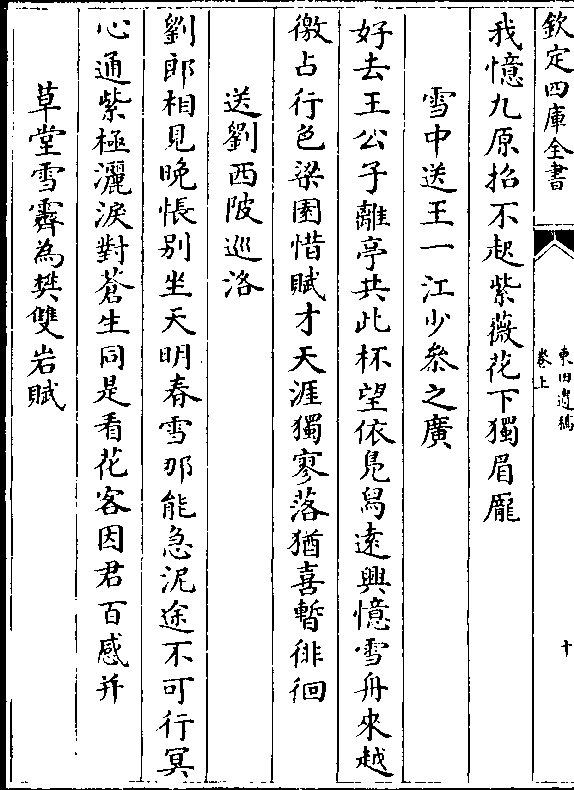 欽定四庫全書
東田遺稿
卷上
十
我憶九原招不起紫薇花下獨眉龎
雪中送王一江少叅之廣
好去王公子離亭共此杯望依鳬舄遠興憶雪舟來越
徼占行色梁園惜賦才天涯獨寥落猶喜暫徘徊
送劉西陂巡洛
劉郎相見晚悵别坐天明春雪那能急泥途不可行冥
心通紫極灑淚對蒼生同是看花客因君百感并
草堂雪霽為樊雙岩賦